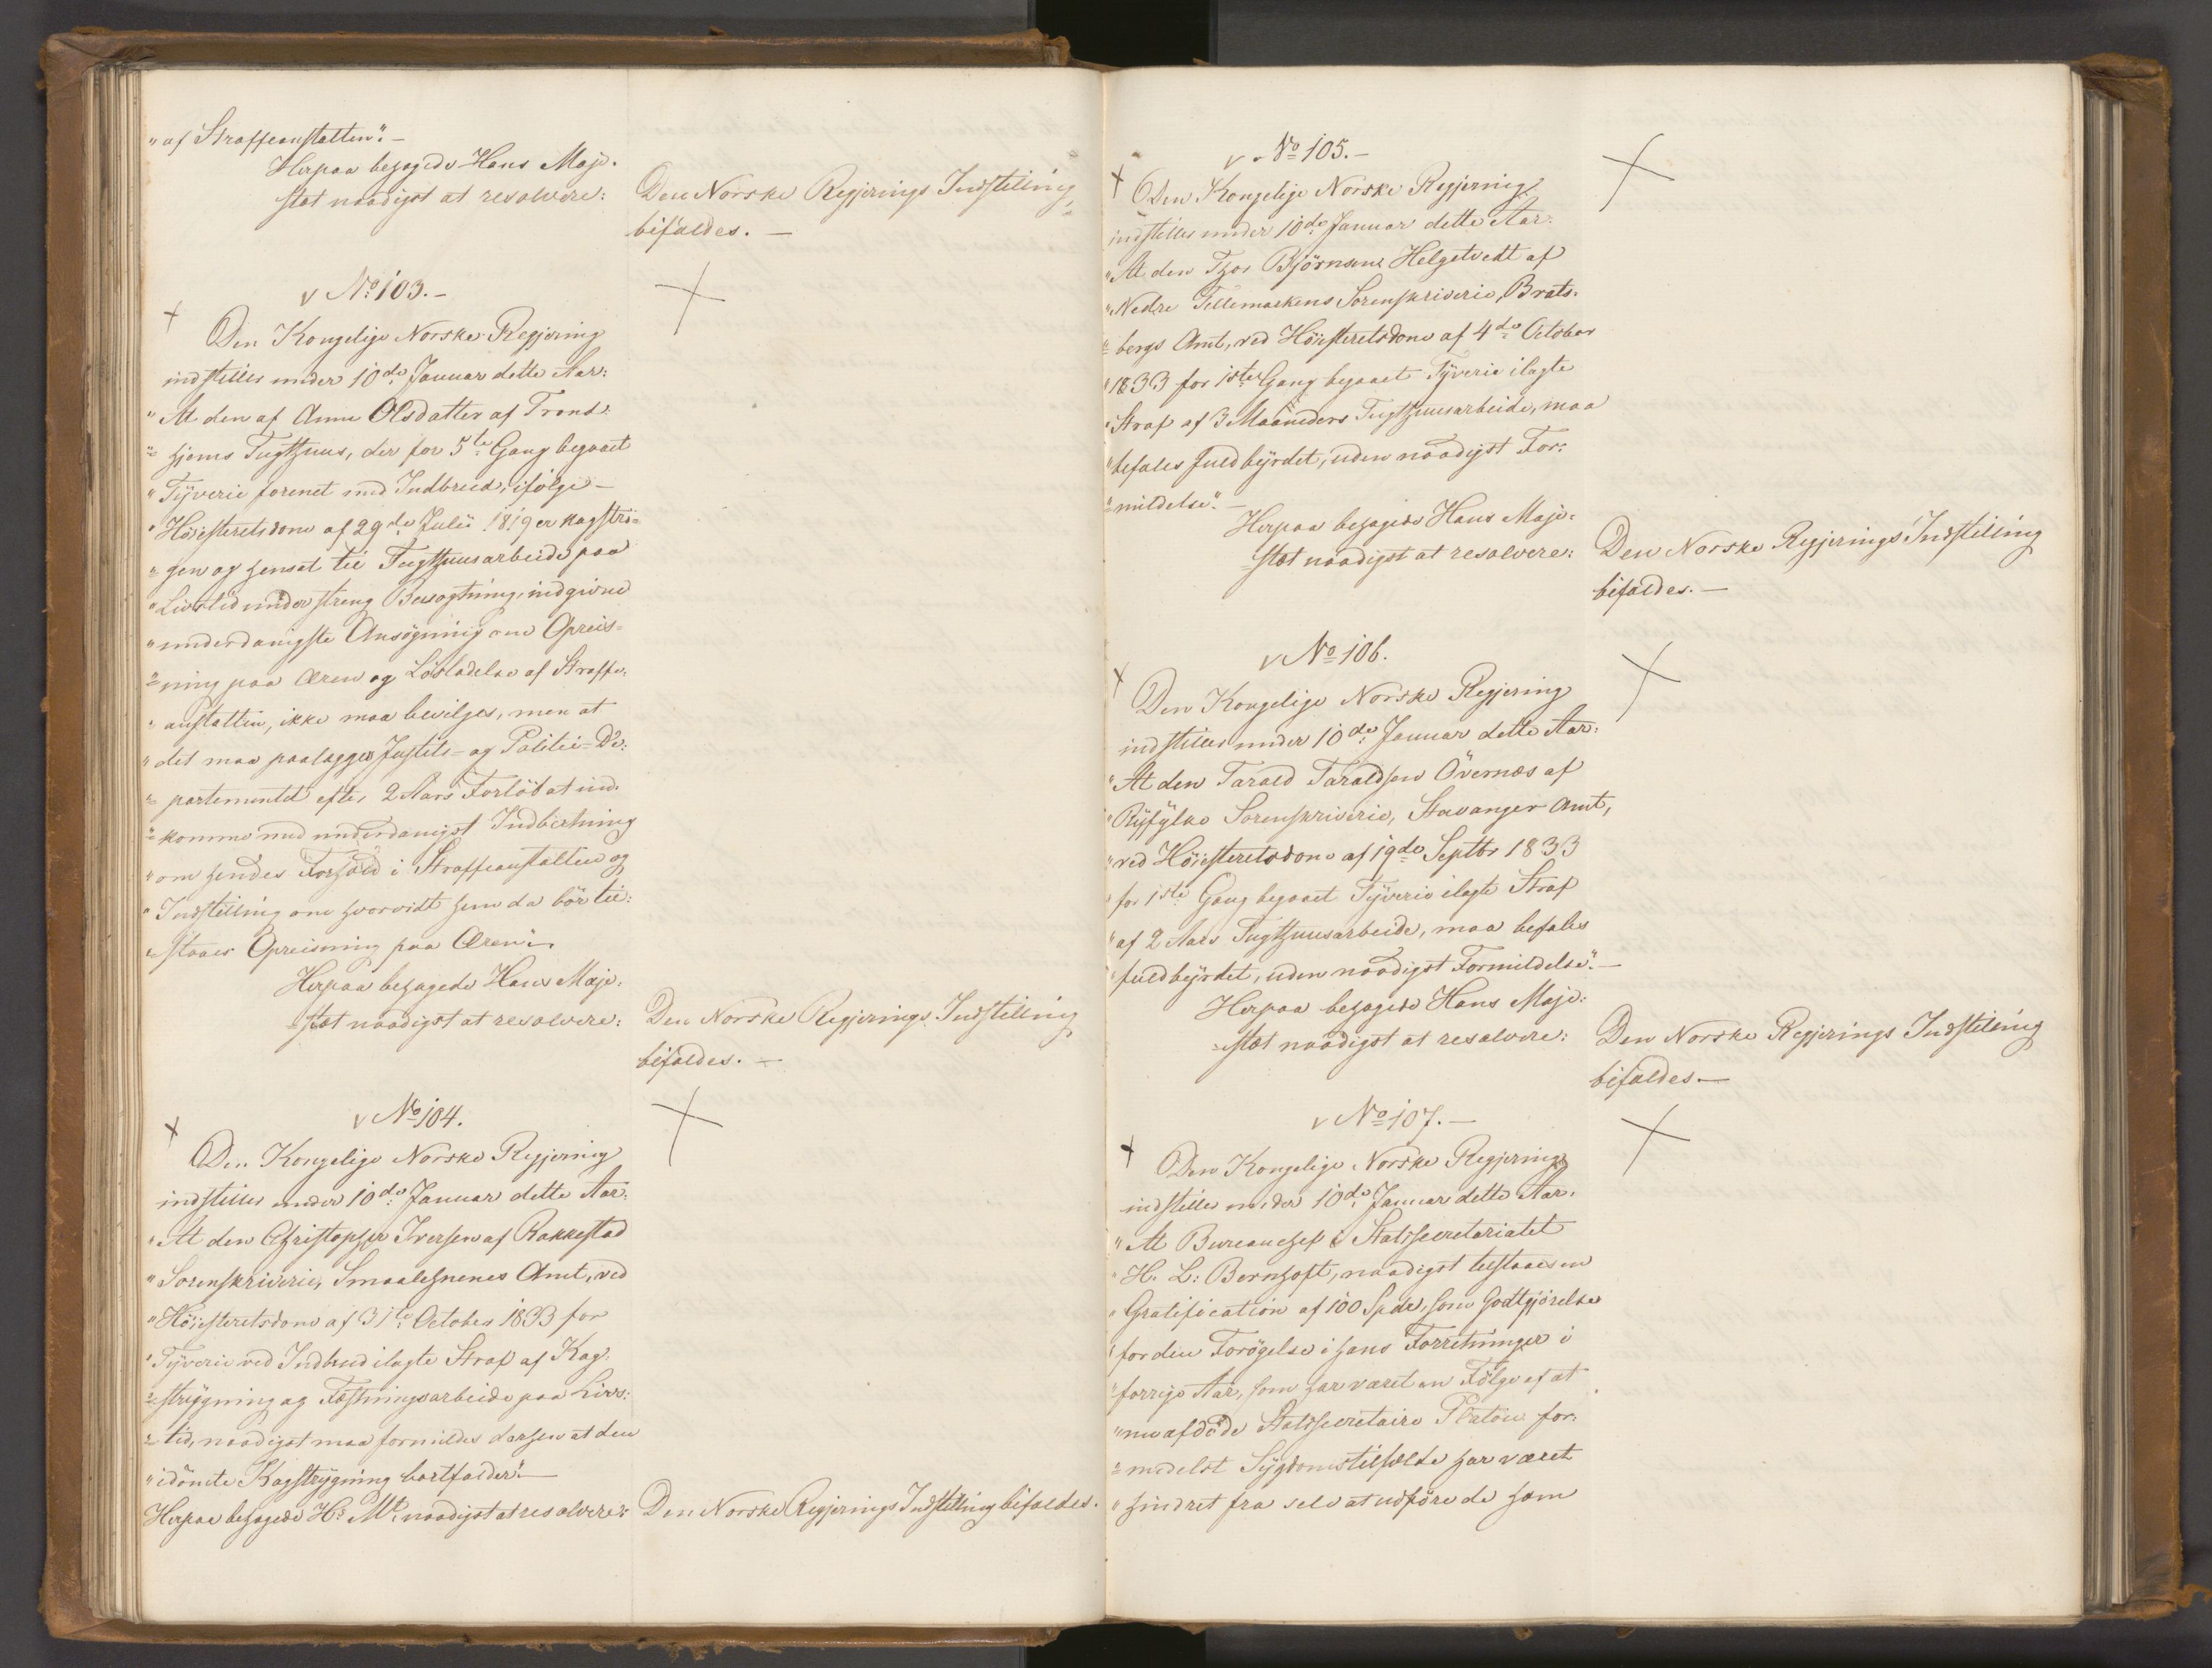 "af Straffeanstalten". —
Herpaa behagede Hans Maje-
stæt naadigst at resolvere:
Den Norske Regjerings Indstilling
bifaldes. —
v No 103. —
Den Kongelige Norske Regjering
indstiller under 10de Januar dette Aar:
"At den af Anne Olsdatter af Trond-
"hjems Tugthuus, der for 5te Gang begaaet
"Tyverie forenet med Indbrud, ifølge
"Höiesteretsdom af 29de Julii 1819 er kagströ-
"gen og hensat til Tugthuusarbeide paa
"Livstid under streng Bevogtning, indgivne
"underdanigste Ansögning om Opreis-
"ning paa Æren og Lösladelse af Straffe-
"anstalten, ikke maa bevilges, men at
"det maa paalægges Justits- og Politie-De-
"partementet efter 2 Aars Forlöb at ind-
"komme med underdanigst Indberetning
"om hendes Forhold i Straffeanstalten og
"Indstilling om hvorvidt hun da bör til-
"staaes Opreisning paa Æren".
Herpaa behagede Hans Maje-
stæt naadigst at resolvere:
Den Norske Regjerings Indstilling
bifaldes. —
v No 104.
Den Kongelige Norske Regjering
indstiller under 10de Januar dette Aar:
"At den Christopher Iversen af Rakkestad
"Sorenskriverie, Smaalehnenes Amt, ved
"Höiesteretsdom af 31te October 1833 for
"Tyverie ved Indbrud ilagte Straf af Kag-
"strygning og Fæstningsarbeide paa Livs-
"tid, naadigst maa formildes derhen at den
"idömte Kagstrygning bortfalder". —
Herpaa behagede Hs Mt naadigst at resolvere:
Den Norske Regjerings Indstilling bifaldes.
v No 105. —
Den Kongelige Norske Regjering
indstiller under 10de Januar dette Aar:
"At den Thor Björnsen Helgetvedt af
"Nedre Tellemarkens Sorenskriverie, Brats-
"bergs Amt, ved Höiesteretsdom af 4de October
"1833 for 1ste Gang begaaet Tyverie ilagte
"Straf af 3 Maaneders Tugthuusarbeide, maa
"befales fuldbyrdet, uden naadigst For-
"mildelse". —
Herpaa behagede Hans Maje-
stæt naadigst at resolvere:
Den Norske Regjerings Indstilling
bifaldes. —
v No 106.
Den Kongelige Norske Regjering
indstiller under 10de Januar dette Aar:
"At den Tarald Taraldsen Övernæs af
"Ryfylke Sorenskriverie, Stavanger Amt,
"ved Höiesteretsdom af 19de Septbr 1833
"for 1ste Gang begaaet Tyverie ilagte Straf
"af 2 Aars Tugthuusarbeide, maa befales
"fuldbyrdet, uden naadigst Formildelse". —
Herpaa behagede Hans Maje-
stæt naadigst at resolvere:
Den Norske Regjerings Indstilling
bifaldes. —
v No 107. —
Den Kongelige Norske Regjering
indstiller under 10de Januar dette Aar:
"At Bureauchef i Statssecretariatet
"H. L. Bernhoft, naadigst tilstaaes en
"Gratification af 100 Spdr, som Godtgjörelse
"for den Forögelse i hans Forretninger i
"forrige Aar, som har været en Fölge af at
"nu afdöde Statssecretaire Platou for-
"medelst Sygdomstilfælde har været
"hindret fra selv at udföre de ham